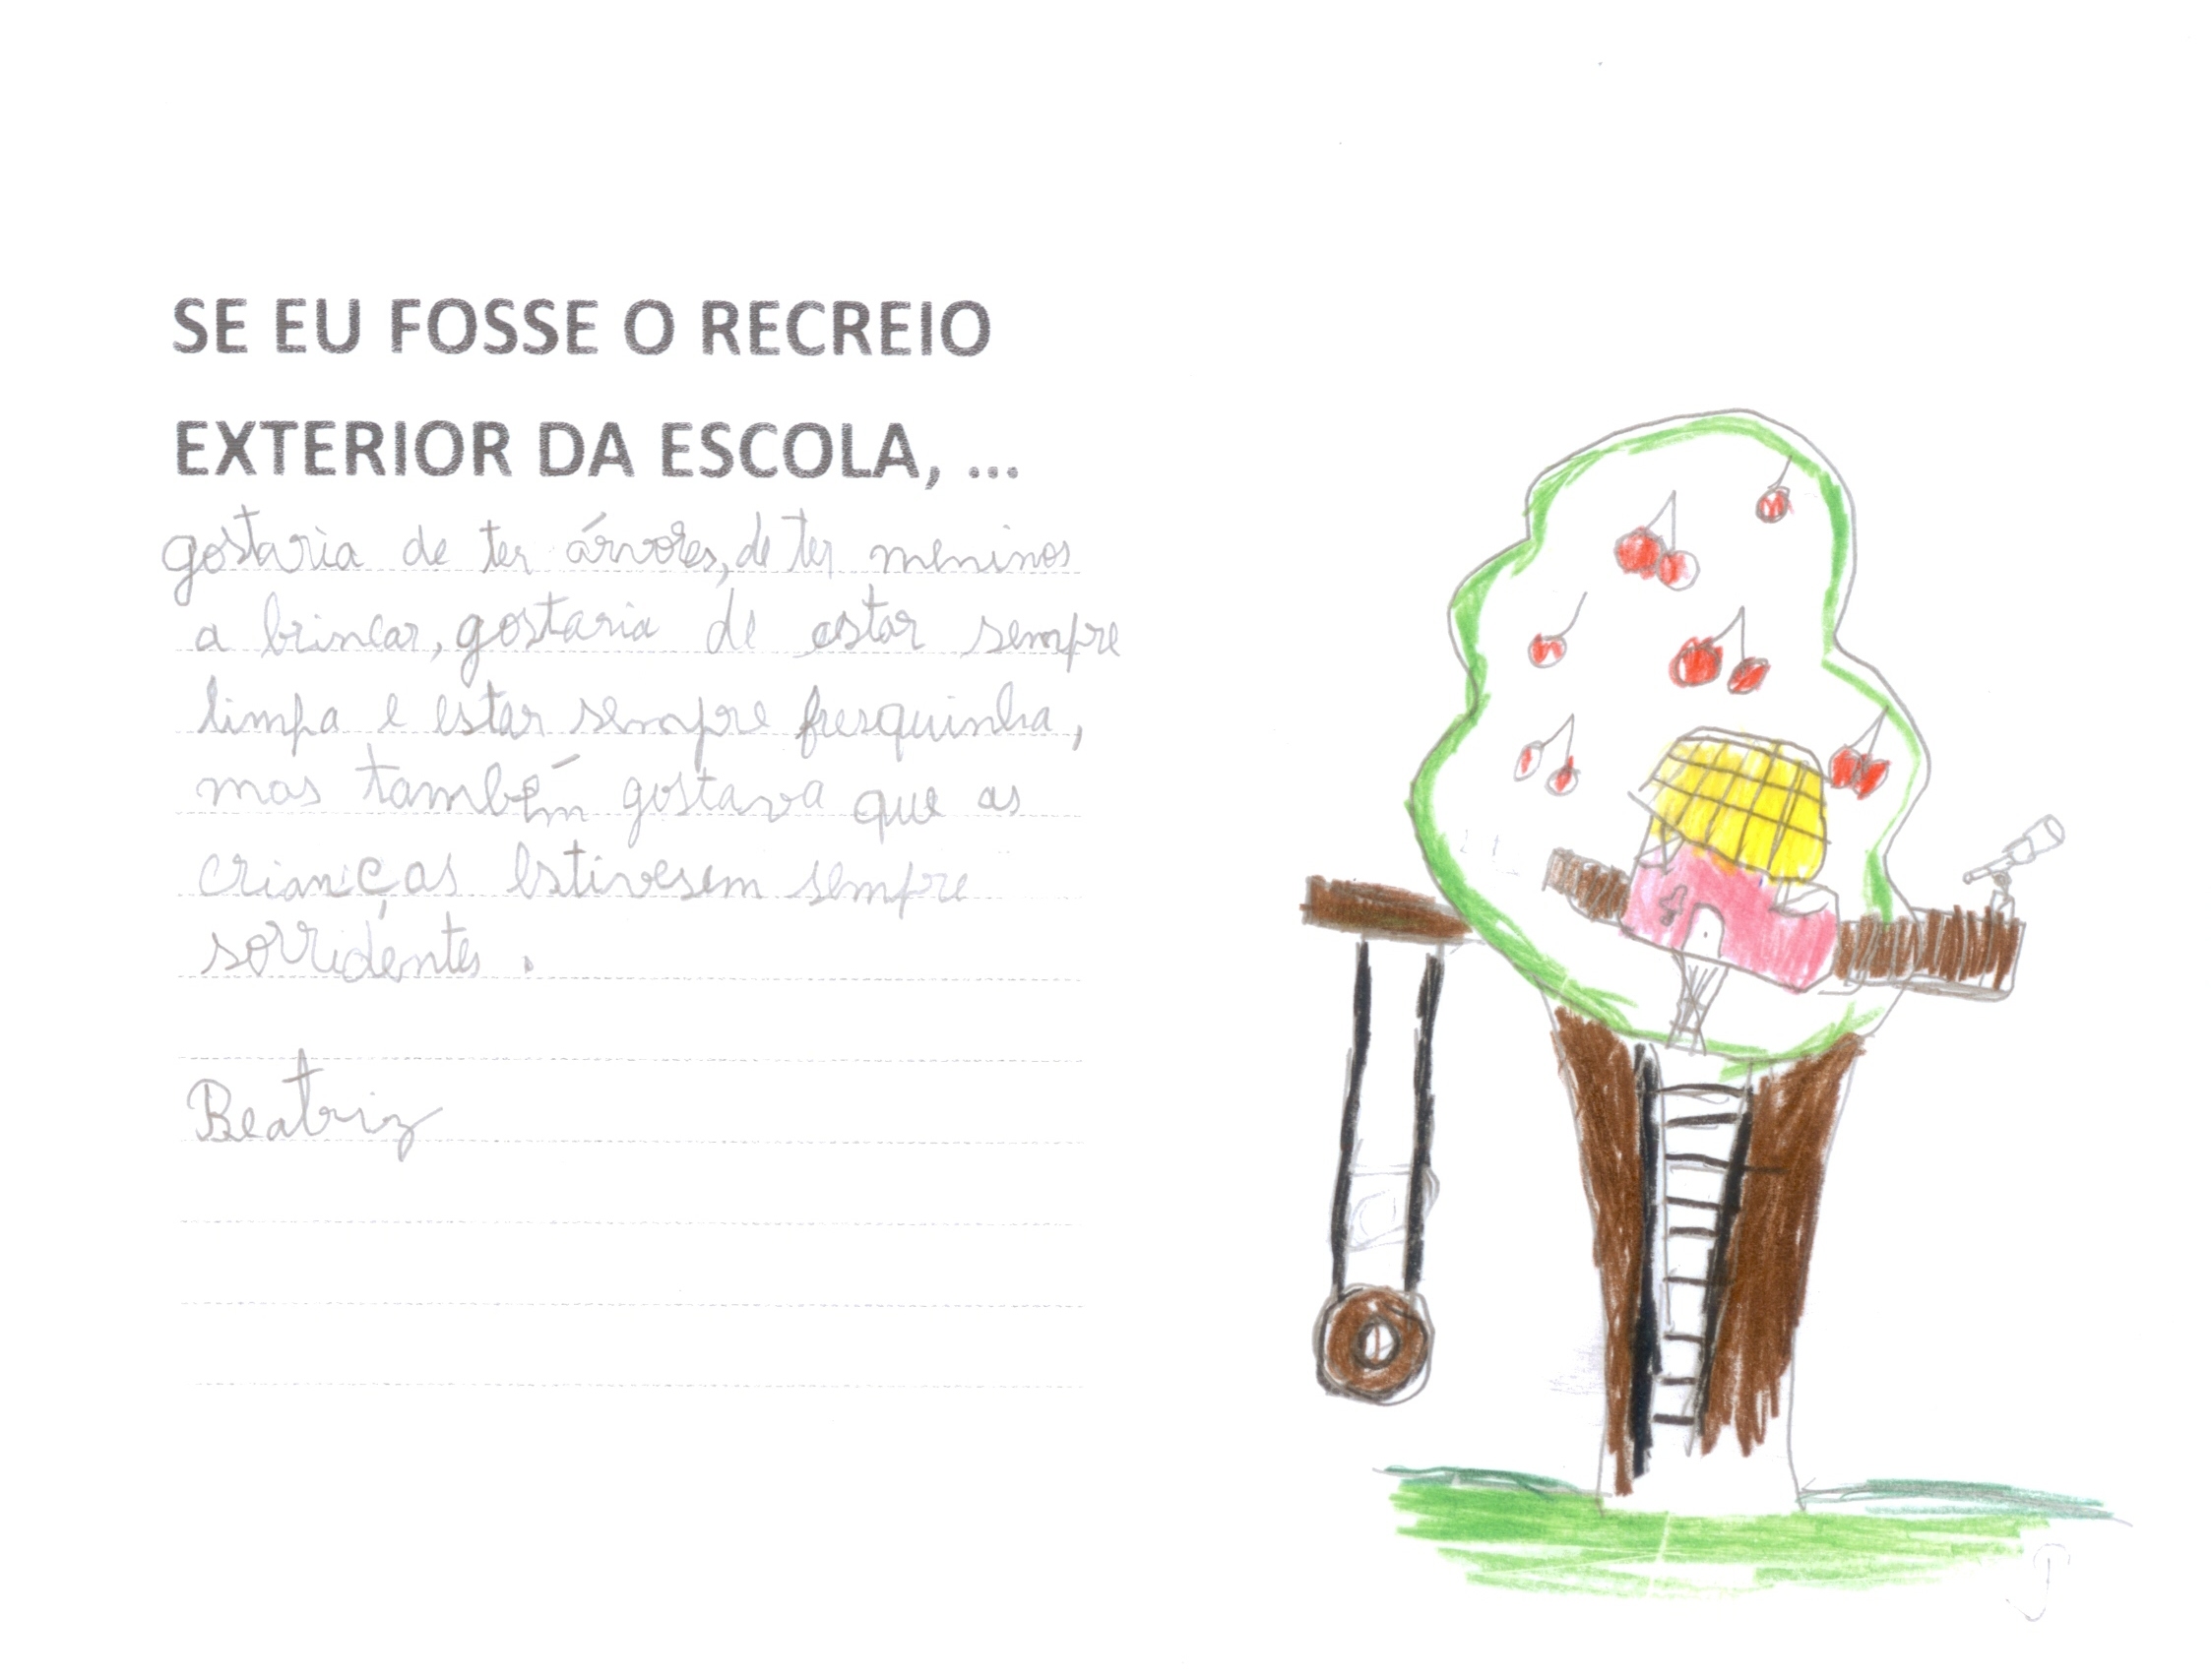 SE EU FOSSE O RECREIO
EXTERIOR DA ESCOLA, ...
gostaria de ter árvores, de ter meninos
a brincar, gostaria de estar sempre
limpa e estar sempre fresquinha,
mas também gostava que as
crianças estivesem sempre
sorridentes.
Beatriz